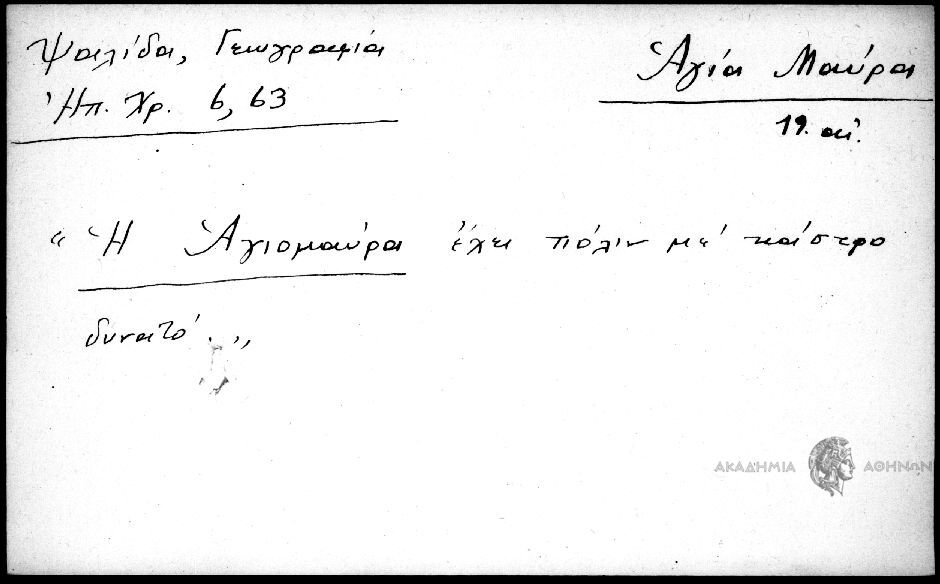 Ψαλίδα, Γεωγραφία
Ἠπ. Χρ. 6, 63
Ἁγία Μαύρα
19. αἰ.
“ Ἡ Ἁγιομαύρα ἔχει πόλιν μέ κάστρο
δυνατό. „
ΑΚΑΔΗΜΙΑ ΑΘΗΝΩΝ